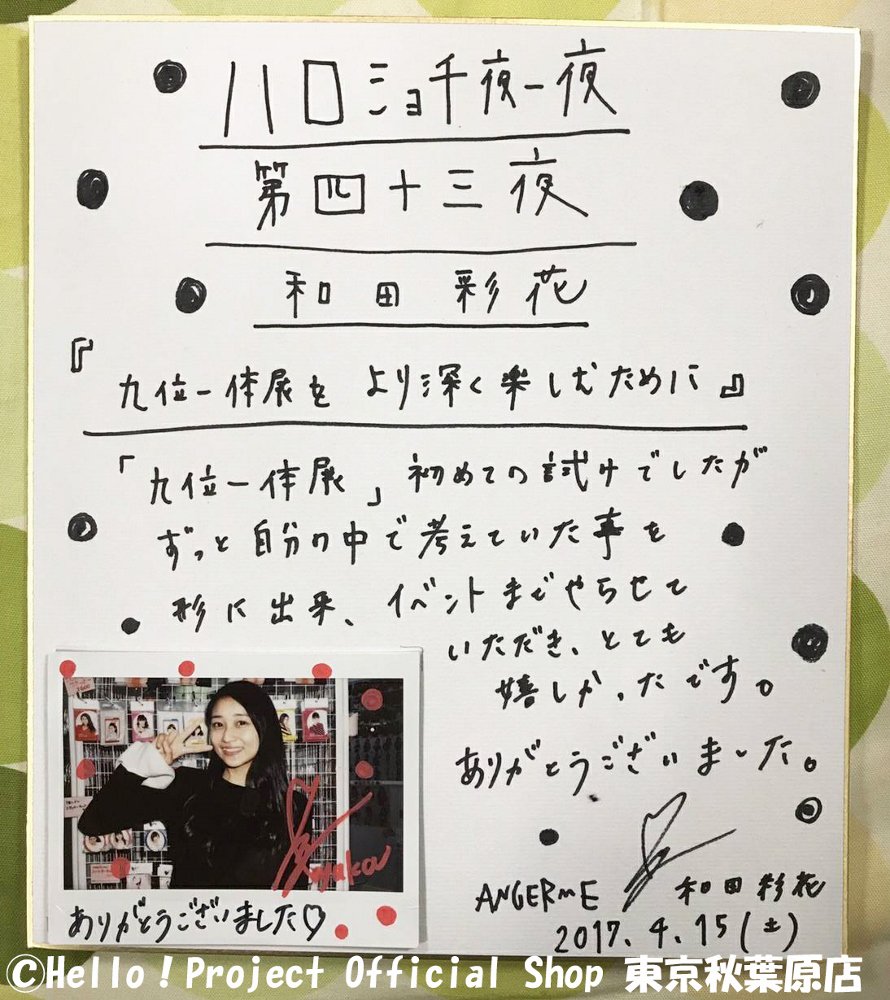 ハロショ千夜一夜
第四十三夜
和田 彩花
『九位一体展を より深く楽しむために』
「九位一体展」初めての試みでしたが
ずっと自分の中で考えていた事を
形に出来、イベントまでやらせて
いただき、とても
嬉しかったです。
ありがとうございました。
ANGERME 和田彩花
2017.4.15(土)
ayaka
ありがとうございました♡
©Hello! Project Official Shop 東京秋葉原店